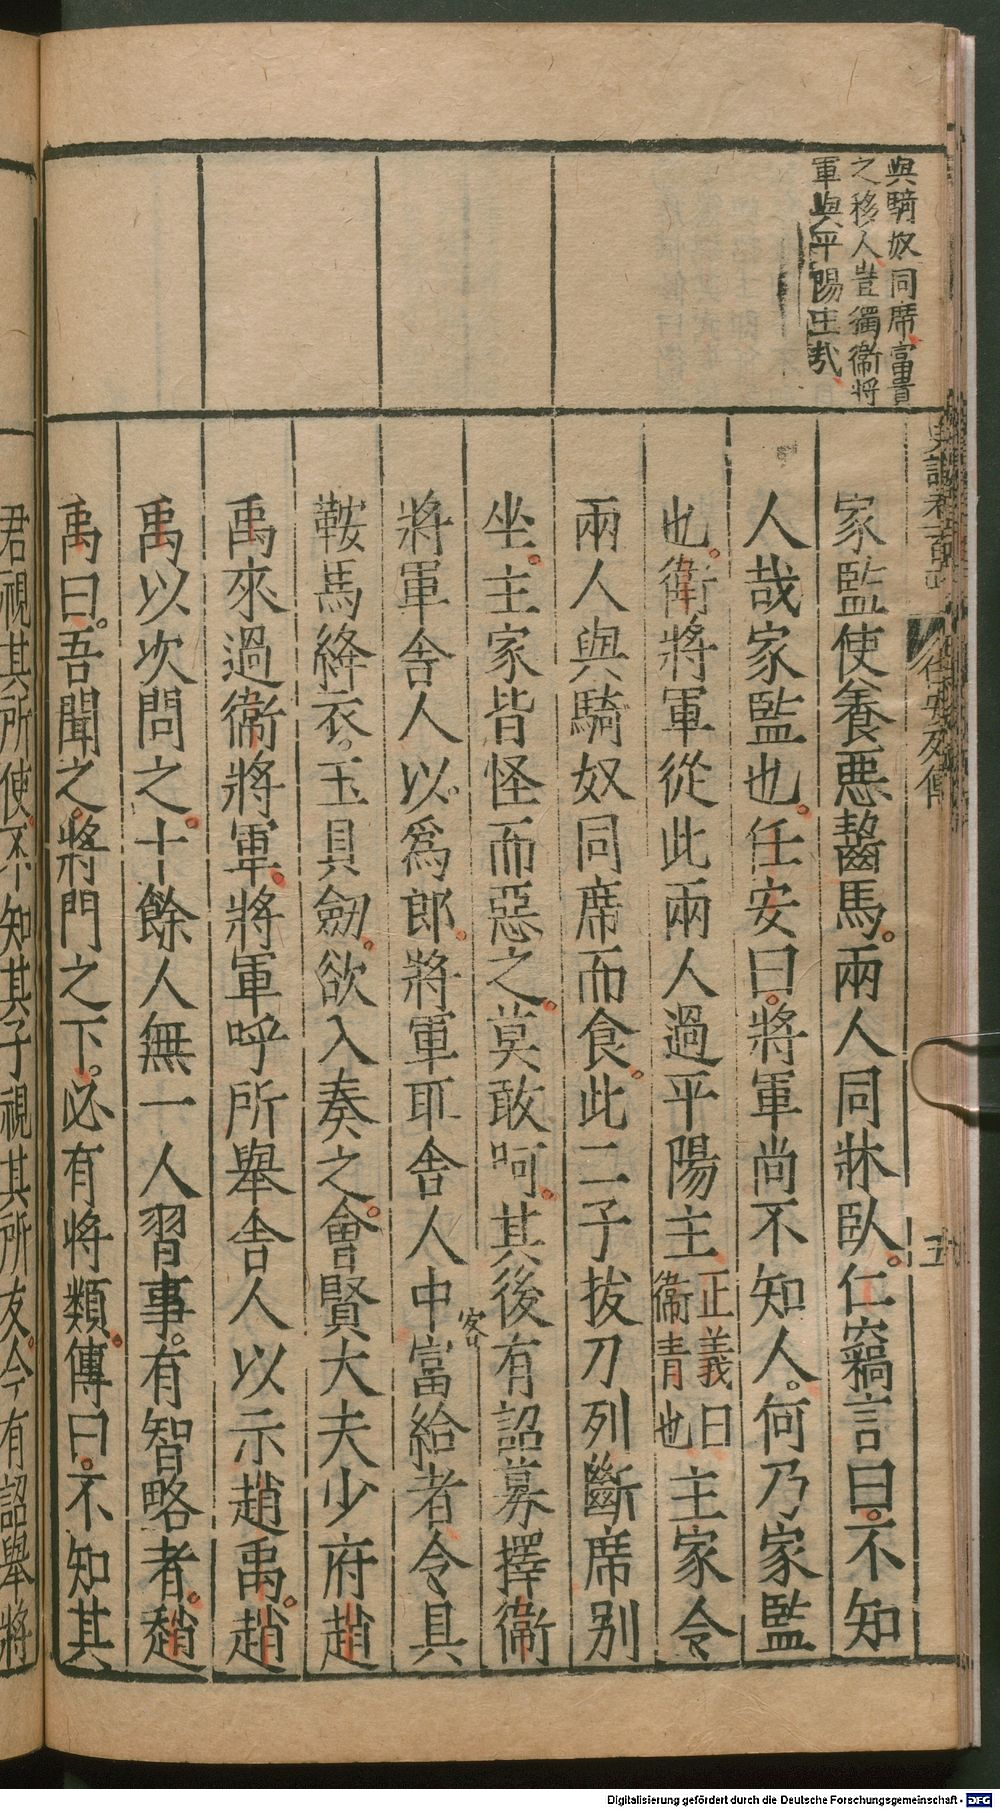 與騎奴同席富貴
之移人豈獨衞將
軍與平陽主哉
家監使養惡齧馬兩人同牀臥仁竊言曰不知
人哉家監也任安曰將軍尚不知人何乃家監
也衛將軍從此兩人過平陽主正義曰衞青也主家令
兩人與騎奴同席而食此二子拔刀列斷席别
坐主家皆怪而惡之莫敢呵其後有詔募擇衞
將軍舍人以爲郎將軍取舍人中富給者令具
客
鞍馬絳衣玉具劒欲入奏之會賢大夫少府趙
禹來過衞將軍將軍呼所舉舍人以示趙禹趙
禹以次問之十餘人無一人習事有智略者趙
禹曰吾聞之將門之下必有將類傳曰不知其
君視其所使不知其子視其所友今有詔舉將
任安列傳
五
Digitalisierung gefördert durch die Deutsche Forschungsgemeinschaft - DFG